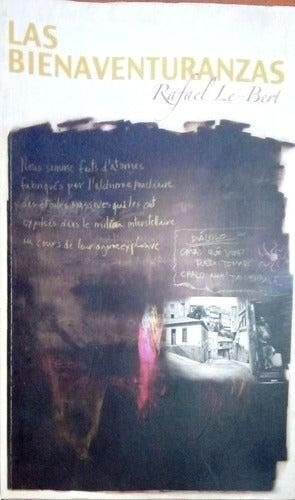 LAS
BIENAVENTURANZAS
Rafael Le-Bert
Nous somme faits d'atomes
fabriqués par l'alchimie nucléaire
des étoiles massives qui les ont
dans le milieu interstellaire
au cours de leur agonie explosive
DIÁLOGO